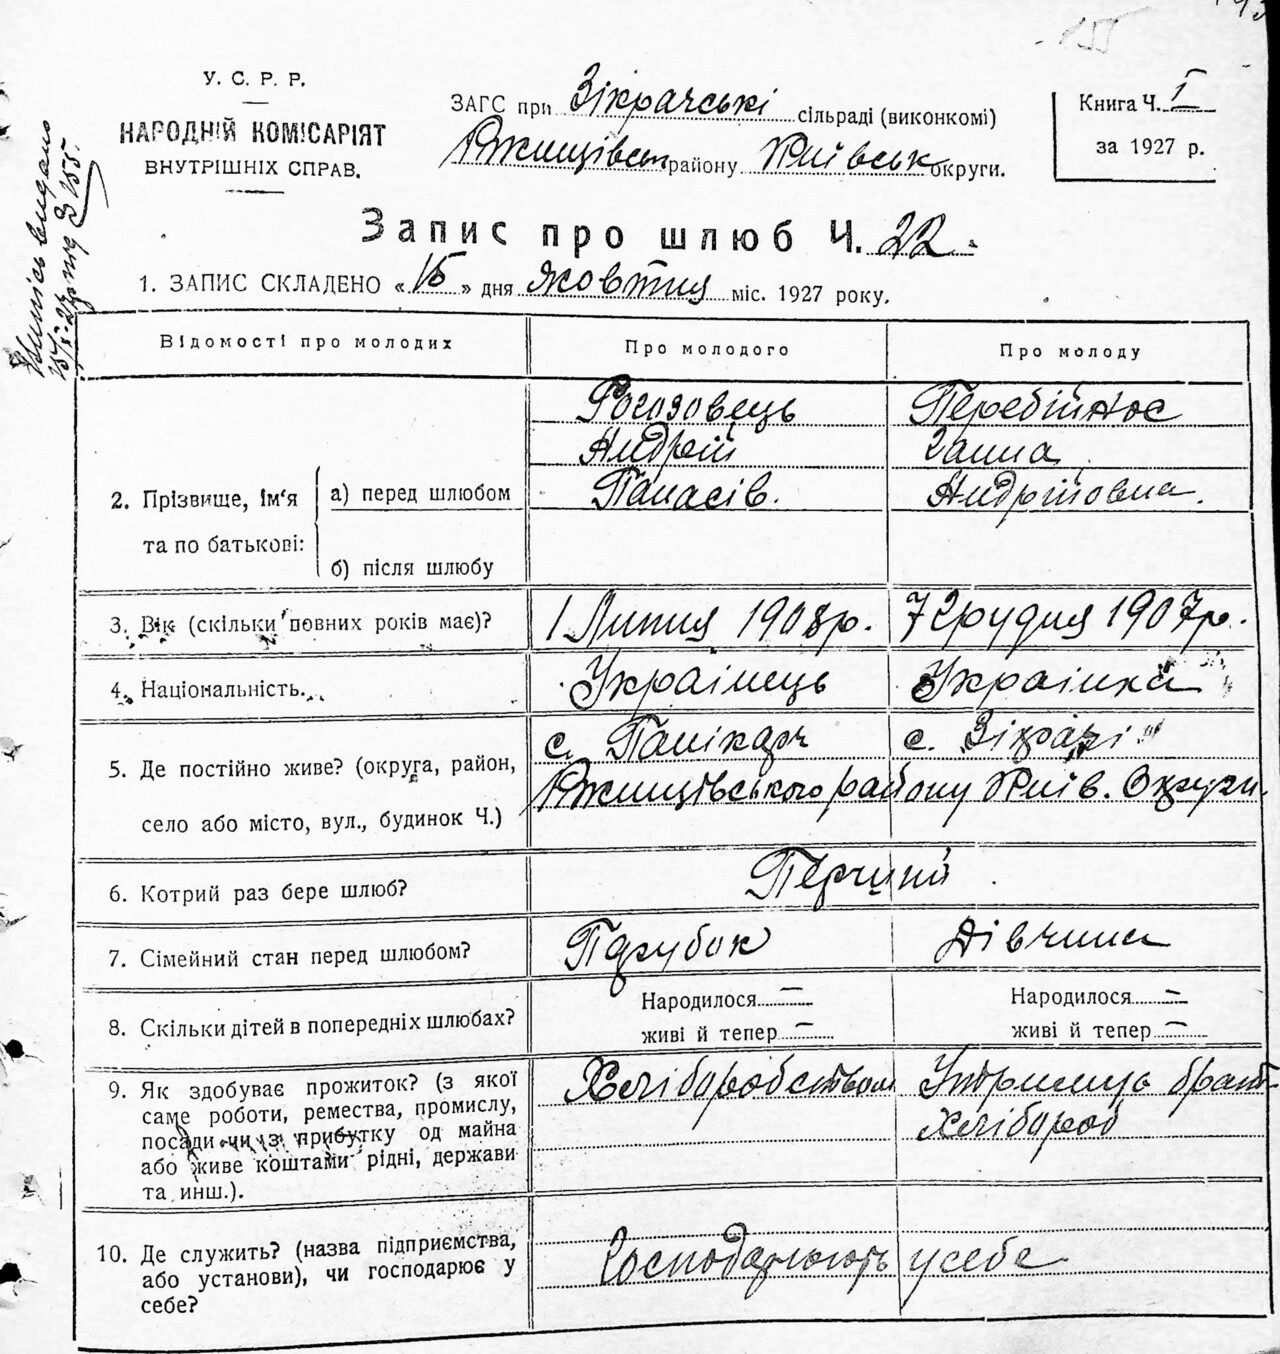 У. С. Р. Р.
НАРОДНІЙ КОМІСАРІЯТ
ВНУТРІШНІХ СПРАВ.
ЗАГС при Зікрачські сільраді (виконкомі)
Ржищівськ району Київськ округи.
Книга Ч. I
за 1927 р.
Запис про шлюб Ч. 22.
1. ЗАПИС СКЛАДЕНО «15» дня жовтня міс. 1927 року.
Відомості про молодих
Про молодого
Про молоду
2. Прізвище, ім'я та по батькові:
а) перед шлюбом
Рогозовець
Андрій
Панасів.
Перебійнос
Ганна
Андрійовна.
б) після шлюбу
3. Вік (скільки повних років має)?
1 Липня 1908р.
7 Грудня 1907р.
4. Національність.
Українець
Українка
5. Де постійно живе? (округа, район,
село або місто, вул., будинок Ч.)
с. Панікарч
с. Зікрачі
Ржищівського району Київ. Округи.
6. Котрий раз бере шлюб?
Перший
7. Сімейний стан перед шлюбом?
Парубок
Дівчина
8. Скільки дітей в попередніх шлюбах?
Народилося —
живі й тепер —
Народилося —
живі й тепер —
9. Як здобуває прожиток? (з якої
саме роботи, ремества, промислу,
посади чи із прибутку од майна
або живе коштами рідні, держави
та инш.).
Хліборобством
Утримець брат
хлібороб
10. Де служить? (назва підприємства,
або установи), чи господарює у
себе?
Господарюють у себе